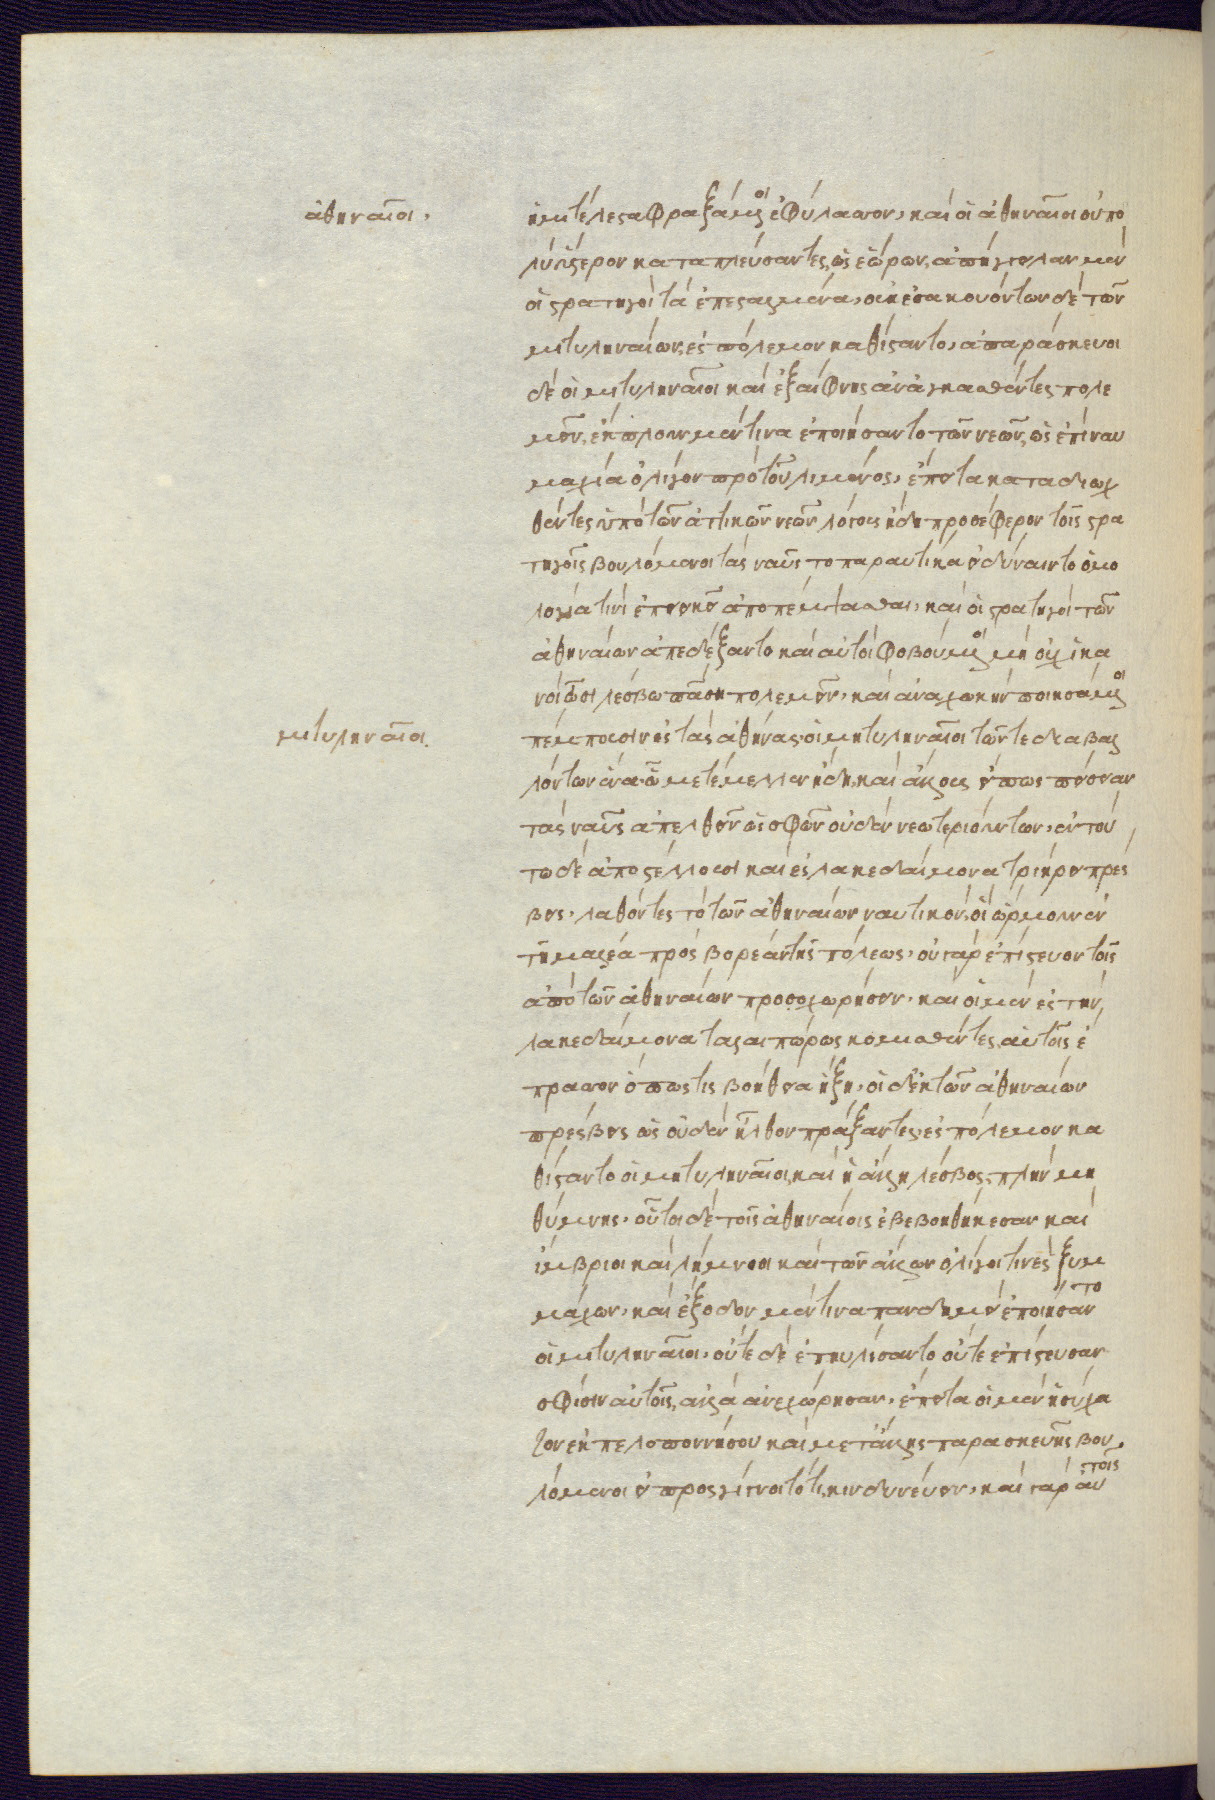 ἀθηναῖοι.
ἡμιτέλεστα φραξάμενοι ἐφύλασσον, καὶ οἱ ἀθηναῖοι οὐ πο
λὺ ὕστερον καταπλεύσαντες, ὡς ἑώρων, ἀπήγγειλαν μὲν
οἱ στρατηγοὶ τὰ ἐπεσταλμένα, οὐκ ἐσακουόντων δὲ τῶν
μιτυληναίων, ἐς πόλεμον καθίσταντο, ἀπαράσκευοι
δὲ οἱ μιτυληναῖοι καὶ ἐξαίφνης ἀναγκασθέντες πολε
μεῖν, ἔκπλουν μέν τινα ἐποιήσαντο τῶν νεῶν, ὡς ἐπὶ ναυ
μαχία ὀλίγον πρὸ τοῦ λιμένος, ἔπειτα καταδιωχ
θέντες ὑπὸ τῶν ἀττικῶν νεῶν λόγους ἤδη προσέφερον τοῖς στρα
τηγοῖς βουλόμενοι τὰς ναῦς τοπαραυτίκα εἰ δύναιντο ὁμο
λογία τινὶ ἐπιεικεῖ ἀποπέμψασθαι, καὶ οἱ στρατηγοὶ τῶν
ἀθηναίων ἀπεδέξαντο καὶ αὐτοὶ φοβούμενοι μὴ οὐχ ἱκα
νοὶ ὦσι λέσβω πάση πολεμεῖν, καὶ ἀναχωκὴν ποιησάμενοι
μιτυληναῖοι.
πέμπουσιν ἐς τὰς ἀθήνας οἱ μητυληναῖοι τῶν τε διαβαλ
λόντων ἕνα ὧ μετέμελλεν ἤδη, καὶ ἄλλους εἴ πως πείσειαν
τὰς ναῦς ἀπελθεῖν ὡς σφῶν οὐδὲν νεωτεριούντων, ἐν τού
τω δὲ ἀποστέλλουσι καὶ ἐς λακεδαίμονα τριήρει πρέσ
βεις, λαθόντες τὸ τῶν ἀθηναίων ναυτικόν, οἳ ὥρμουν ἐν
τῆ μαλέα πρὸς βορέαν τῆς πόλεως, οὐ γὰρ ἐπίστευον τοῖς
ἀπὸ τῶν ἀθηναίων προσχωρήσειν, καὶ οἱ μὲν ἐς τὴν
λακεδαίμονα ταλαιπώρως κομισθέντες, αὐτοῖς ἔ
πρασσον ὅπως τις βοήθεια ἥξη, οἱ δ' ἐκ τῶν ἀθηναίων
πρέσβεις ὡς οὐδὲν ἦλθον πράξαντες, ἐς πόλεμον κα
θίσταντο οἱ μητυληναῖοι, καὶ ἡ ἄλλη λέσβος, πλὴν μη
θύμνης, οὗτοι δὲ τοῖς ἀθηναίοις ἐβεβοηθήκεσαν καὶ
ἴμβριοι καὶ λήμνιοι καὶ τῶν ἄλλων ὀλίγοι τινὲς ξυμ
μάχων, καὶ ἔξοδον μέν τινα πανδημεὶ ἐποιήσαντο
οἱ μιτυληναῖοι, οὔτε δὲ ἐπηυλίσαντο οὔτε ἐπίστευσαν
σφίσιν αὐτοῖς, ἀλλὰ ἀνεχώρησαν, ἔπειτα οἱ μὲν ἡσύχα
ζον ἐκ πελοποννήσου καὶ μετ' ἄλλης παρασκευῆς βου
λόμενοι εἰ προσγένοιτό τι, κινδυνεύειν, καὶ γὰρ αὐτοῖς